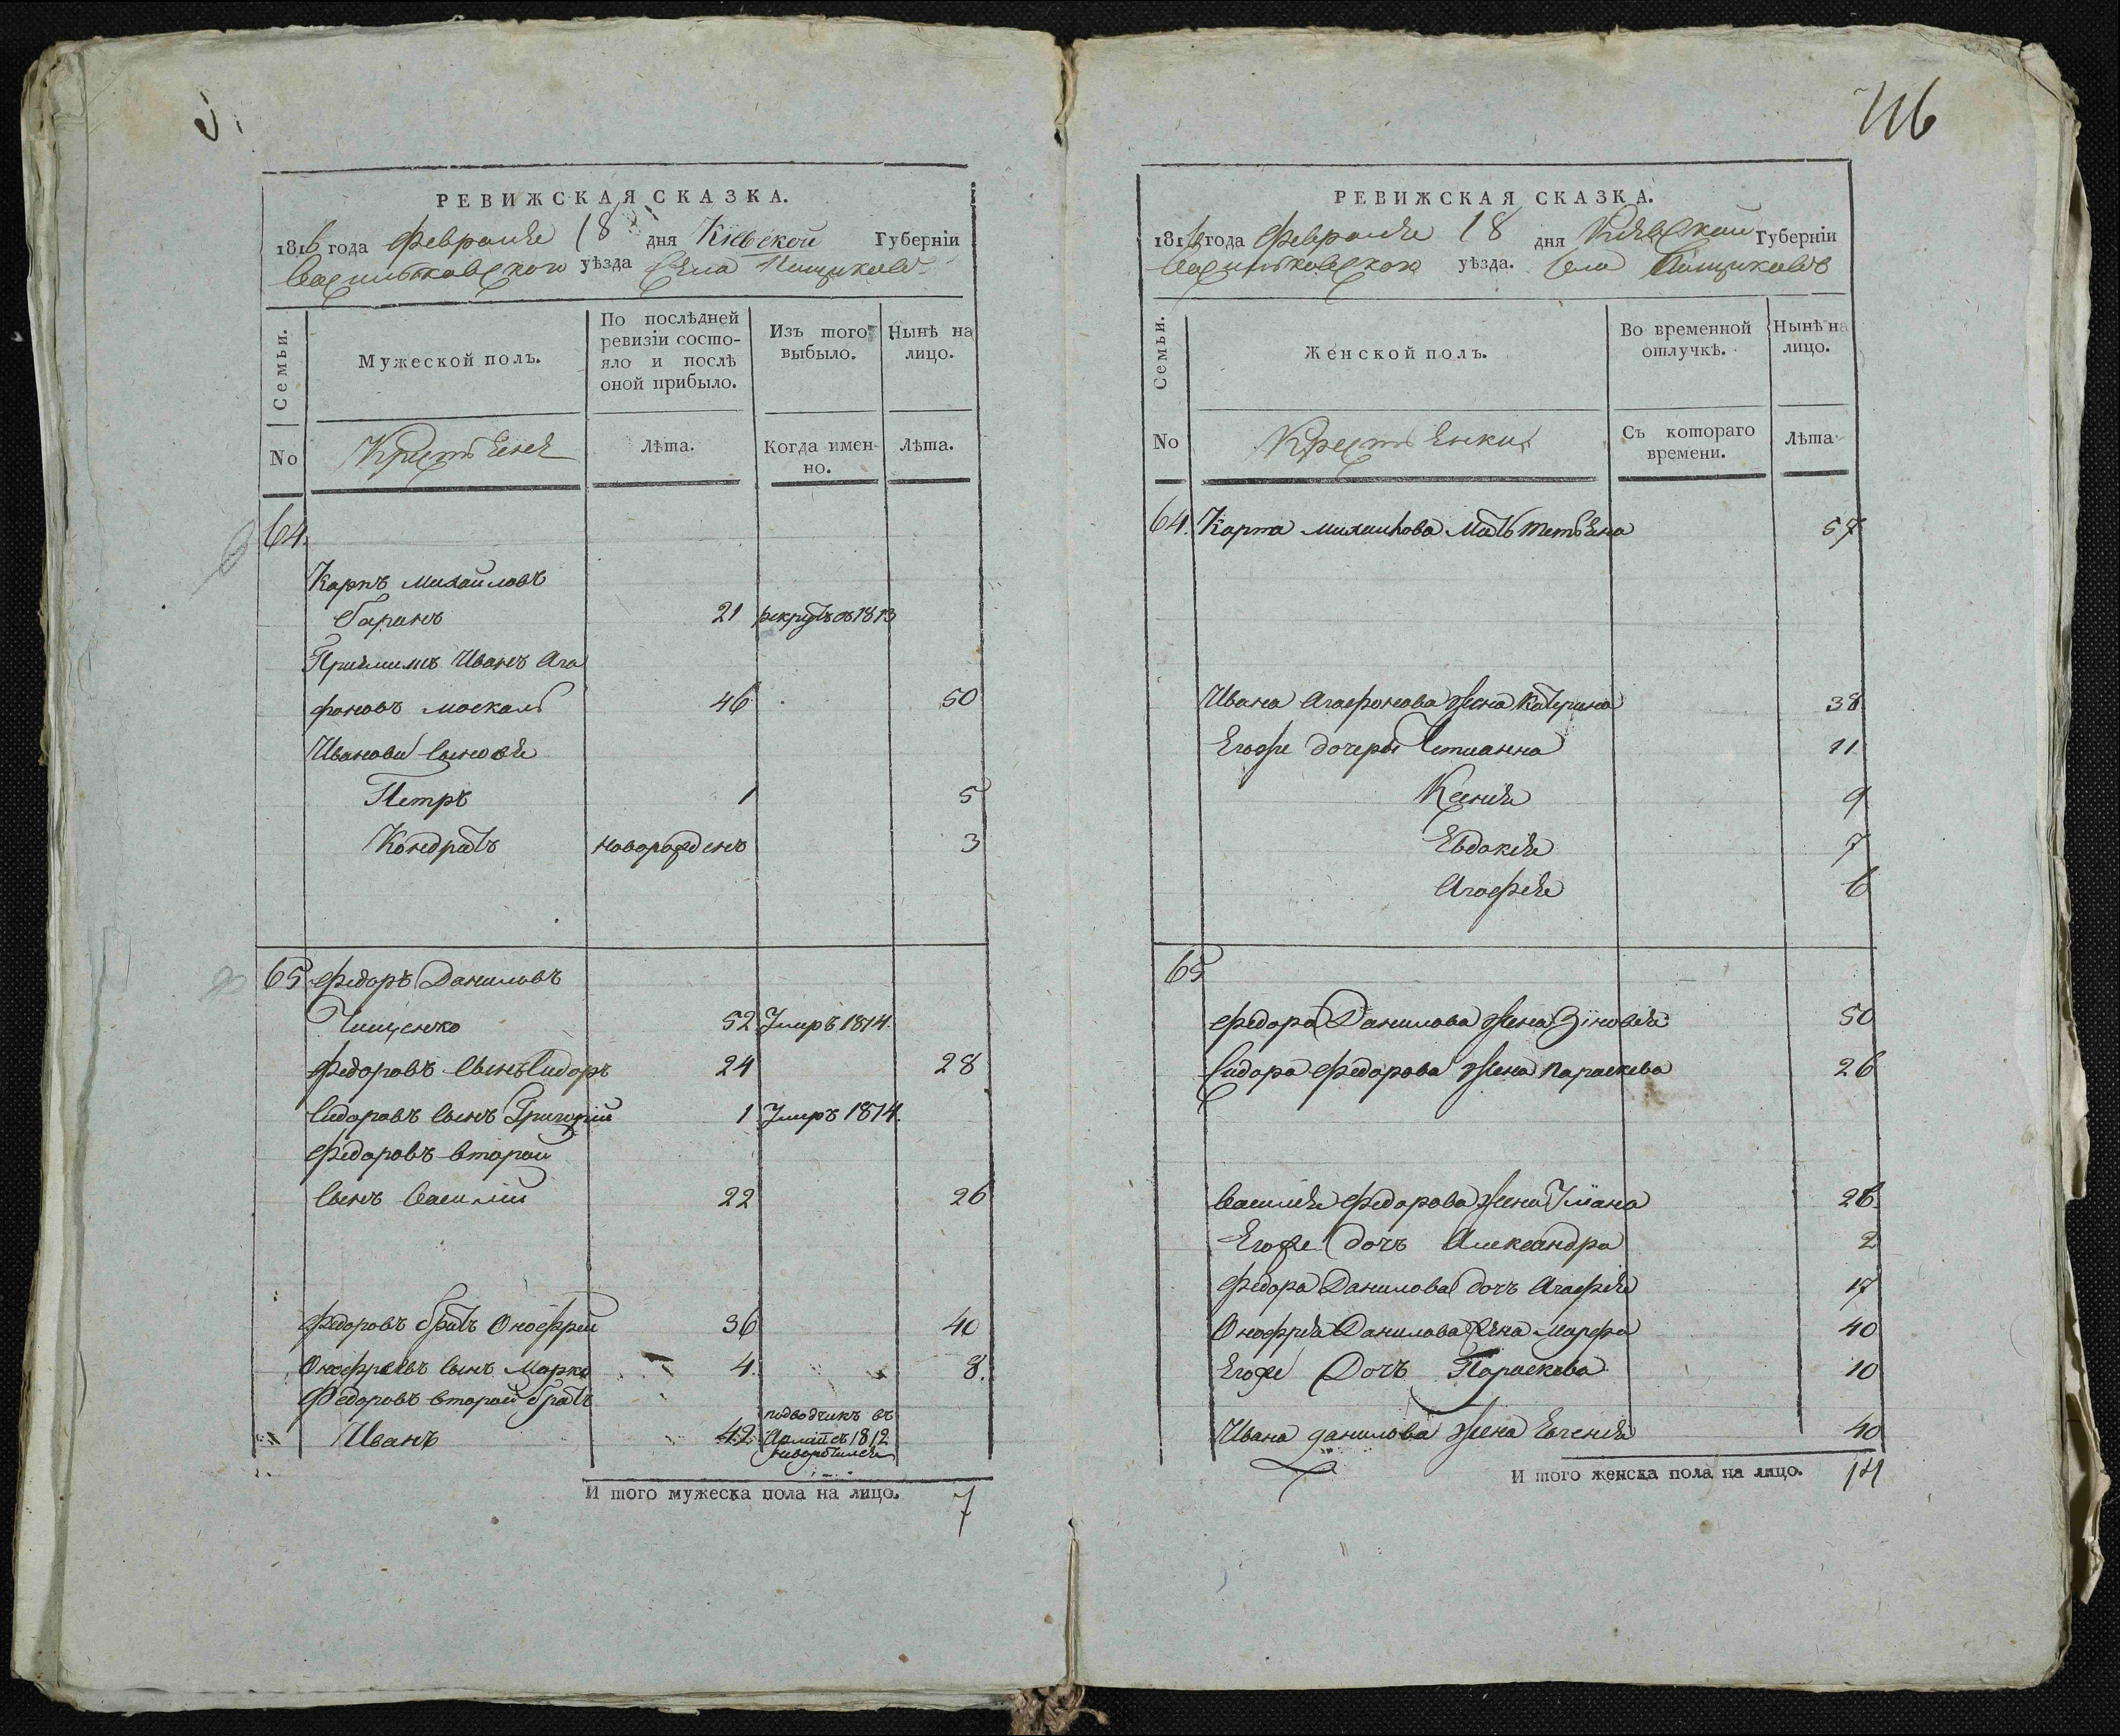 РЕВИЖСКАЯ СКАЗКА.
1816 года Февраля 18 дня Кіевской Губерніи
Васильковского уѣзда Села Пищиковъ
Семьи.
Мужеской полъ.
По послѣдней ревизіи состо-
яло и послѣ
оной прибыло.
Изъ того
выбыло.
Нынѣ на
лицо.
No
Крестьяня
Лѣта.
Когда имен-
но.
Лѣта.
64.
Карпъ Михайловъ
Баранъ 21 рекрутъ въ 1813
Приймитъ Иванъ Ага
фоновъ Москаль 46 50
Ивановы сыновья
Петръ 1 5
Кондратъ новорожденъ 3
65 Федоръ Даниловъ
Тищенко 52 Умръ 1814.
Федоровъ сынъ Сидоръ 24 28
Сидоровъ сынъ Григорій 1 Умръ 1814.
Федоровъ второй
сынъ Василій 22 26
Федоровъ братъ Онофрей 36 40
Онофреевъ сынъ Марко 4. 8.
Федоровъ второй братъ
Иванъ 42 подводчикъ въ
1812
И того мужеска пола на лицо. 7
416
РЕВИЖСКАЯ СКАЗКА.
1816 года Февраля 18 дня Кіевской Губерніи
Васильковского уѣзда. Села Пищиковъ
Семьи.
Женской полъ.
Во временной
отлучкѣ.
Нынѣ на
лицо.
No
Крестьянки
Съ котораго
времени.
Лѣта
64. Карпа Михайлова Мать Тетьяна 57
Ивана Агафонова жена Катерина 38
Егоже дочеры 11
Ксенія 9
Евдокія 7
Агафія 6
65
Федора Данилова жена Зіновія 50
Сидора Федорова жена Параскева 26
Василія Федорова жена Уліана 26.
Егоже дочъ Александра 2
Федора Данилова дочъ Агафія 17
Онофрія Данилова жена Марфа 40
Егоже Дочъ Параскева 10
Ивана Данилова жена Евгенія 40
И того женска пола на лицо. 14